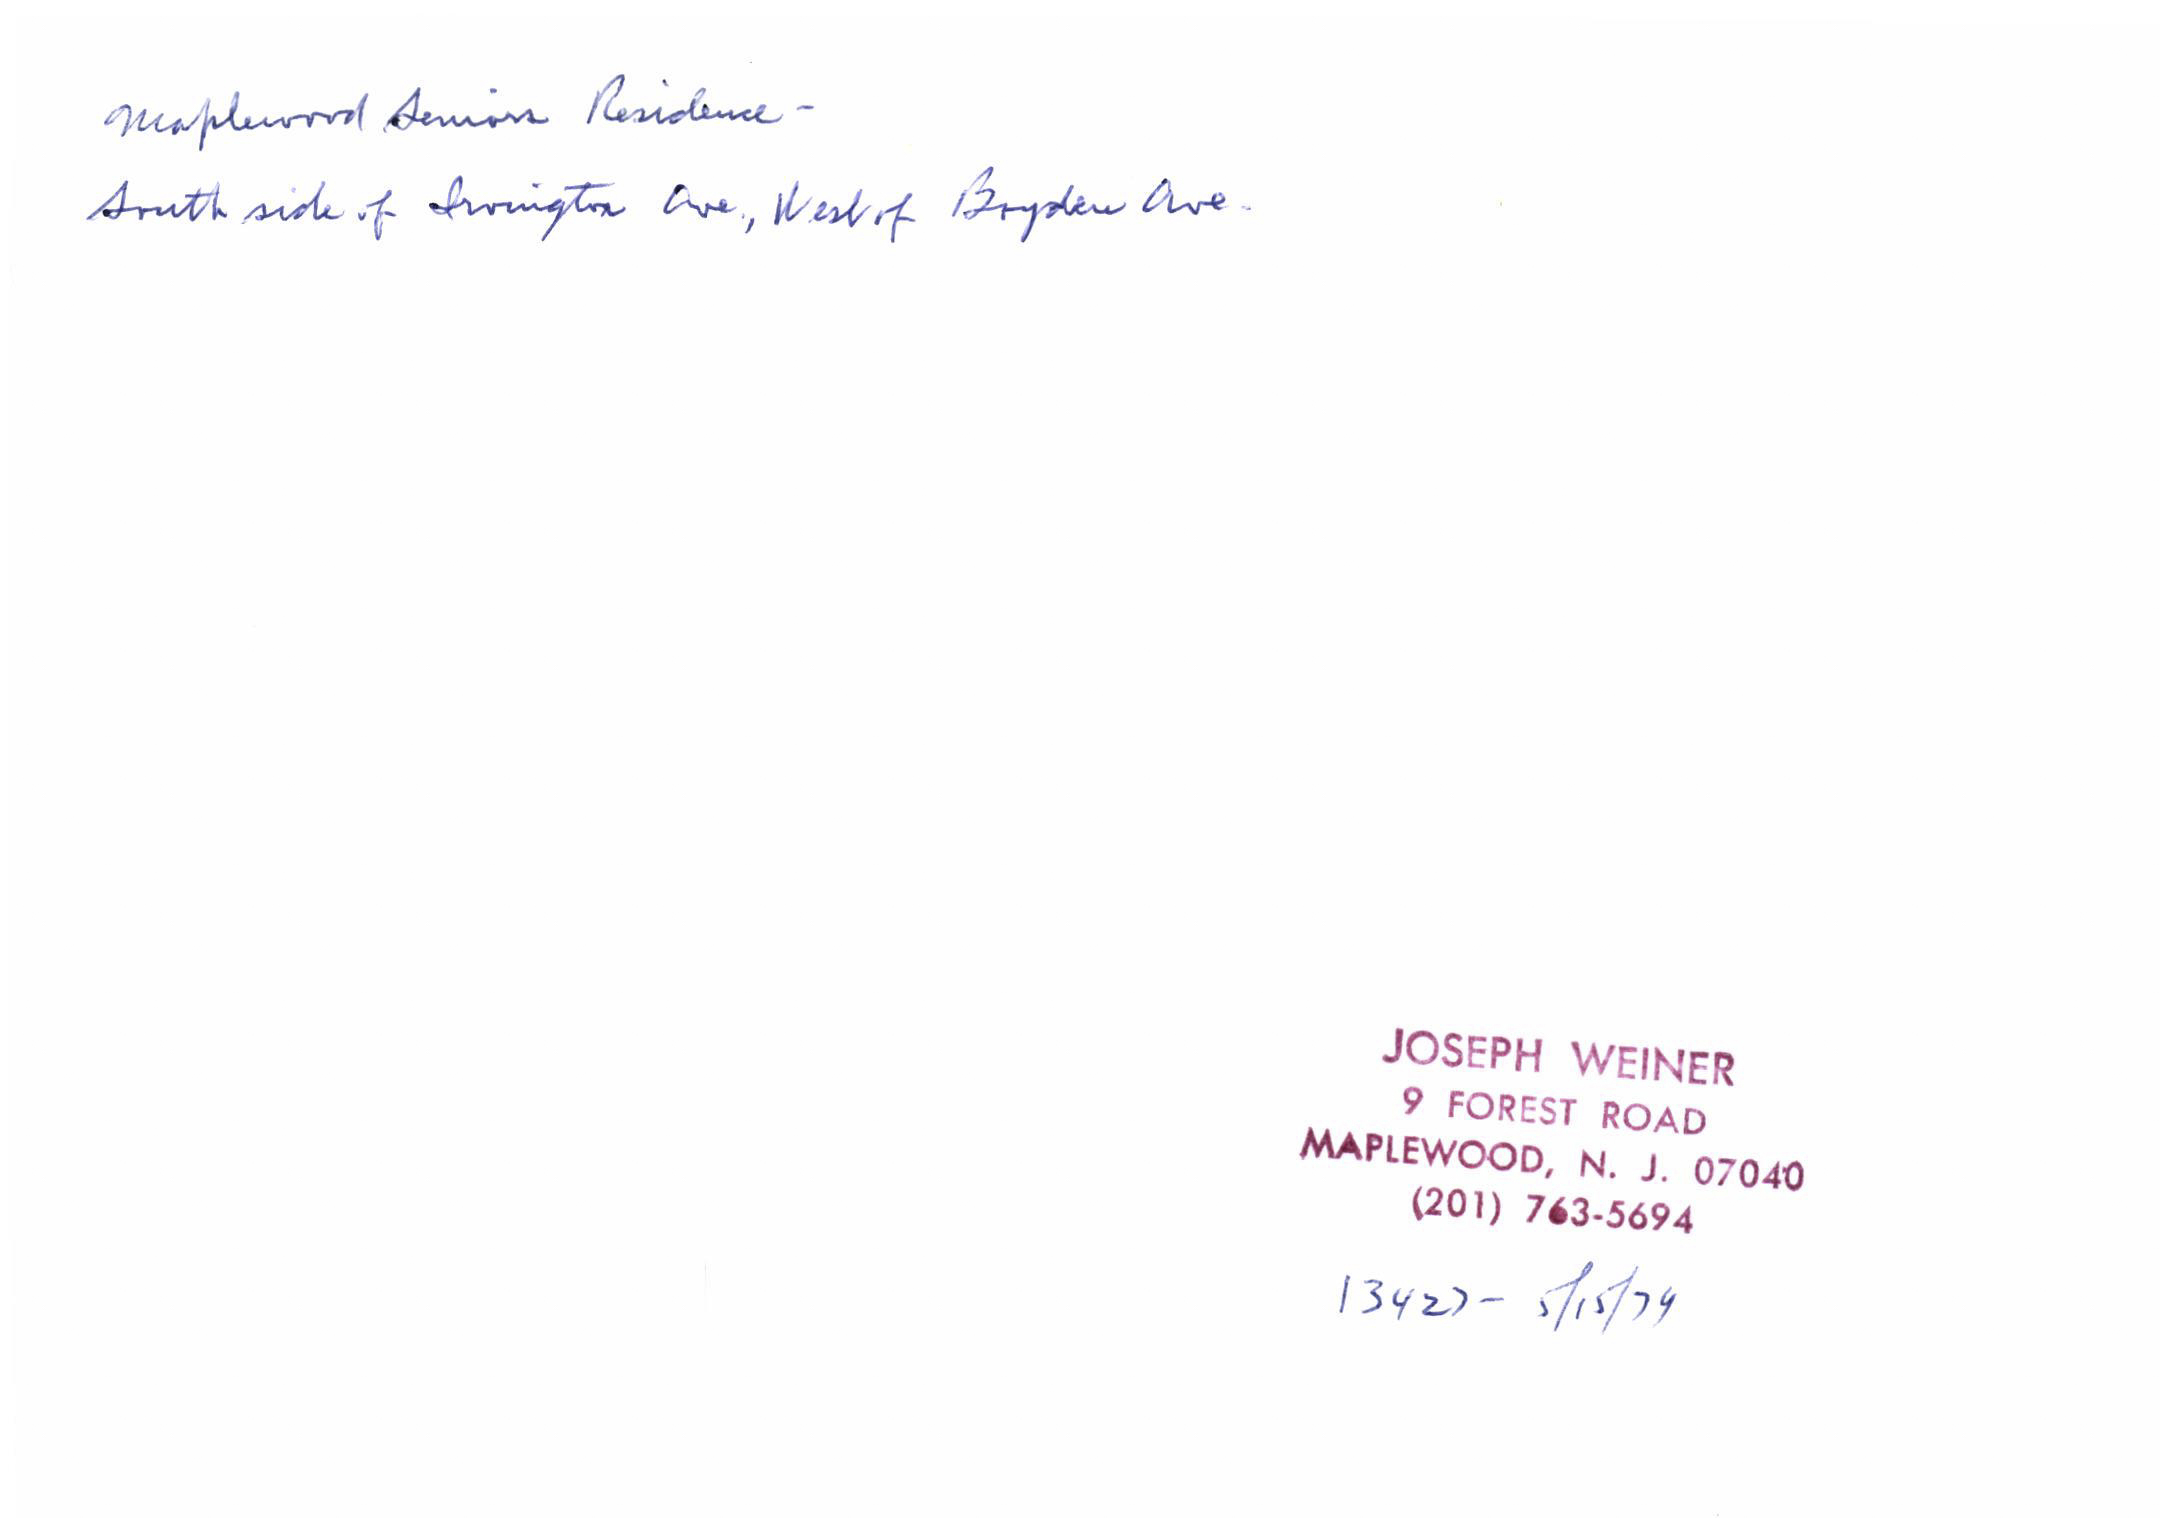 Maplewood Seniors Residence -
South side of Irvington Ave., West of Boyden Ave.
JOSEPH WEINER
9 FOREST ROAD
MAPLEWOOD, N. J. 07040
(201) 763-5694
13427 - 5/15/79